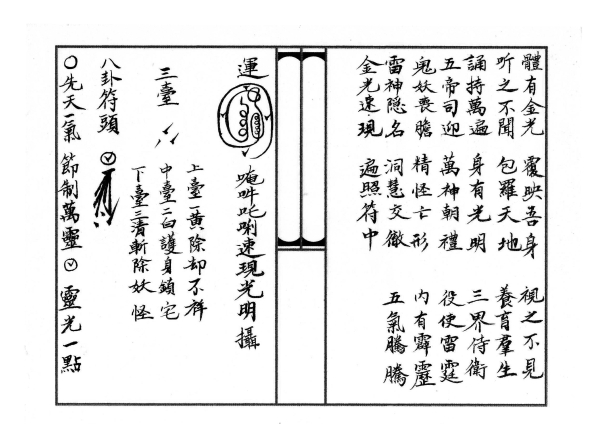 體有金光 覆映吾身 視之不見
听之不聞 包羅天地 養育羣生
誦持萬遍 身有光明 三界侍衛
五帝司迎 萬神朝禮 役使雷霆
鬼妖喪膽 精怪亡形 內有霹靂
雷神隐名 洞慧交徹 五氣騰騰
金光速現 遍照符中
運 唵吽吒唎速現光明攝
三臺
上臺一黃除却不祥
中臺二白護身鎮宅
下臺三清斬除妖怪
八卦符頭
先天一氣 節制萬靈 靈光一點